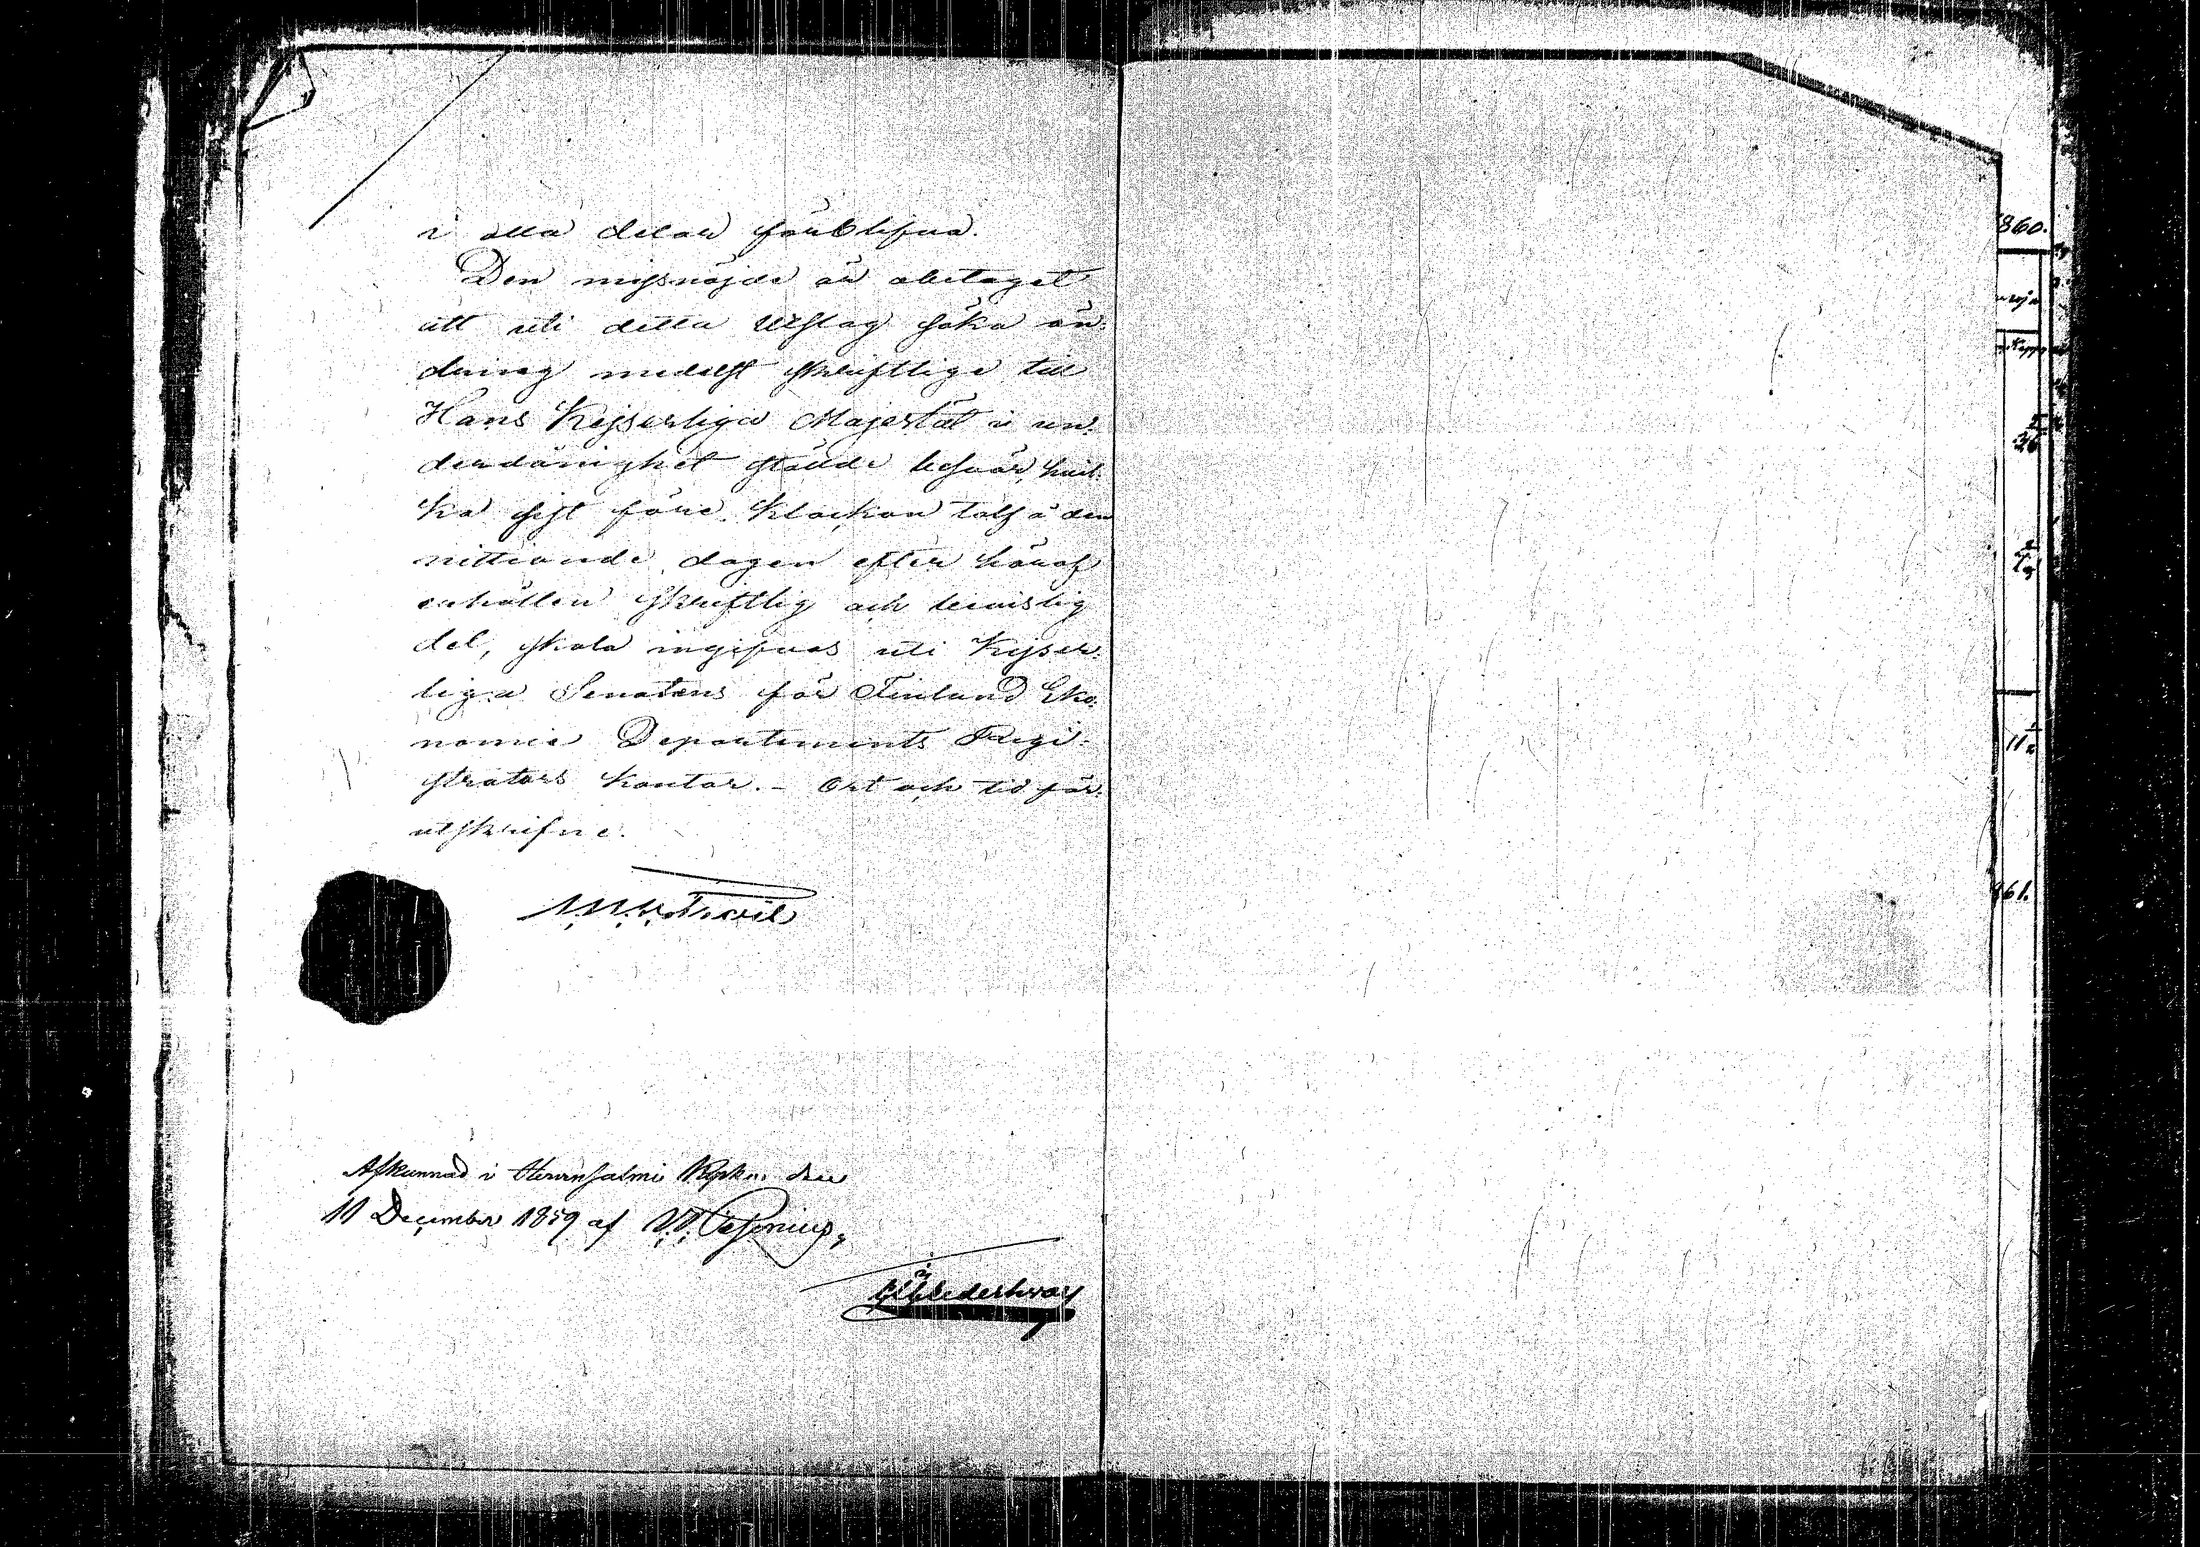 i alla delar förblifva.
Den missnöjde är obetaget
att uti detta Utslag söka än-
dring medelst skriftlige till
Hans Kejserliga Majestät i un-
derdånighet stälde besvär, hvil-
ka sist före klockan tolf å den
nittionde dagen efter häraf
erhållen skriftlig och bevislig
del, skola ingifvas uti Kejser-
liga Senatens för Finland Eko-
nomie Departements Regi-
strators kontor. - Ort och tid för-
utskrifne.
Afkunnad i Hirvensalmi Kyrka den
11 December 1859 af
860.